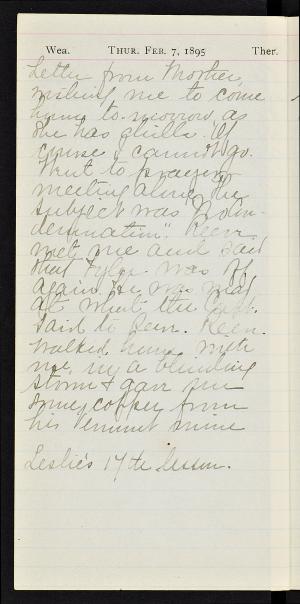 Wea. THUR. FEB. 7, 1895 Ther.
Letter from Mother
wishing me to come
home to-morrow as
she has chills. Of
course I cannot go.
Went to prayer
meeting alone the
subject was "No Con-
demnation" Keen
met me and said
that was
again. He was mad
at what the Capt.
said to him. Keen
walked home with
me in a blinding
storm & gave me
some copper from
his Vermont mine
Leslie's 17th lesson.